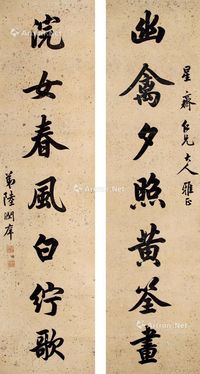 星齋仁兄大人雅正
幽禽夕照黃筌畫
浣女春風白紵歌
弟陸潤庠